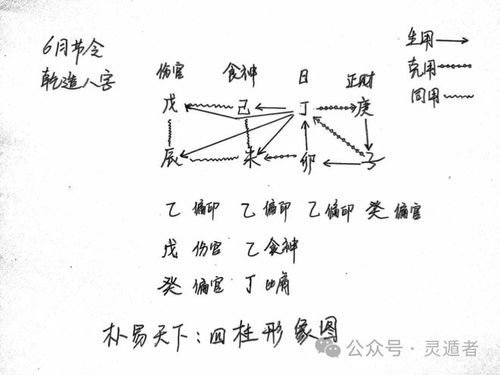 6月节令
乾造八字
生用
克用
同用
伤官 食神 日 正财
戊 己 丁 庚
辰 未 卯 子
乙偏印 乙偏印 乙偏印 癸偏官
戊伤官 乙食神
癸偏官 丁比肩
朴易天下:四柱形象图
公众号·灵遁者